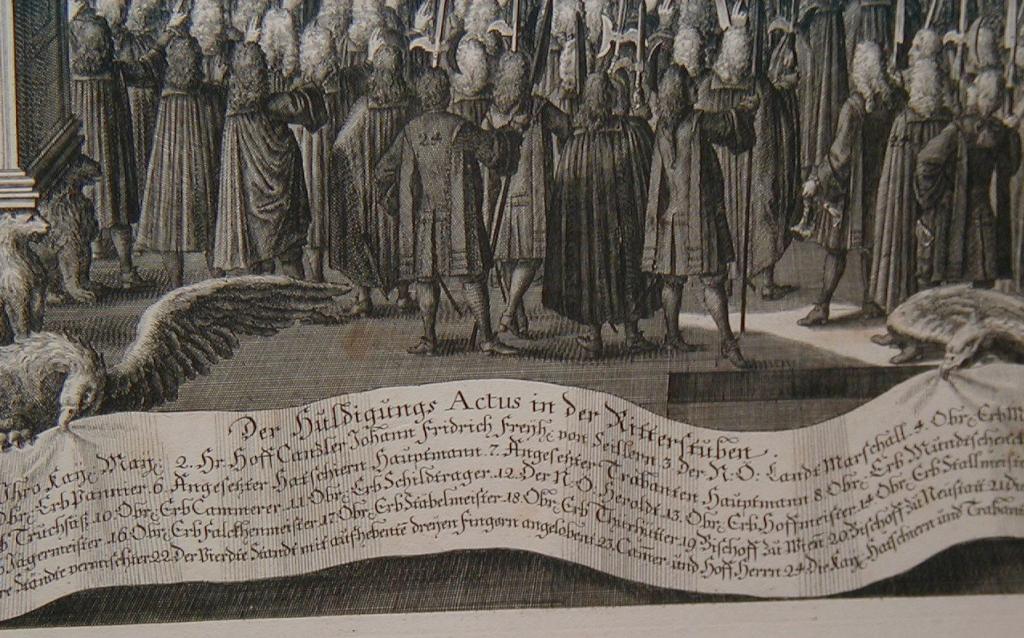 24
Der Huldigungs Actus in der Ritterstuben.
Ihro Kay: May: 2. Hr. Hoff Canzler Johann Fridrich Freyh: von Seillern 3. der N.Ö. Landt Marschall. 4. Obr: Erb
Erb Pannier. 6. Angesetzter Hatschiern Hauptmann. 7. Angesetzter Trabanten Hauptmann 8. Obr: Erb Mundtschenck
Truchsäß. 10. Obr: Erb Cammerer. 11. Obr: Erb Schildtrager. 12. Der N.Ö. Heroldt. 13. Obr: Erb Hoffmeister. 14. Obr: Erb Stallmeister
Jägermeister. 16. Obr: Erb Falckhenmeister. 17. Obr: Erb Stäbelmeister. 18. Obr: Erb Thurhütter. 19. Bischoff zu Wien 20. Bischoff zu Neustatt. 21. Die
Stände vermischter 22. Der Vierdte Standt mit aufhebente dreyen fingern angelobent. 23. Camer und Hoff Herrn 24. Die Kay: Hatschiern und Trabanten